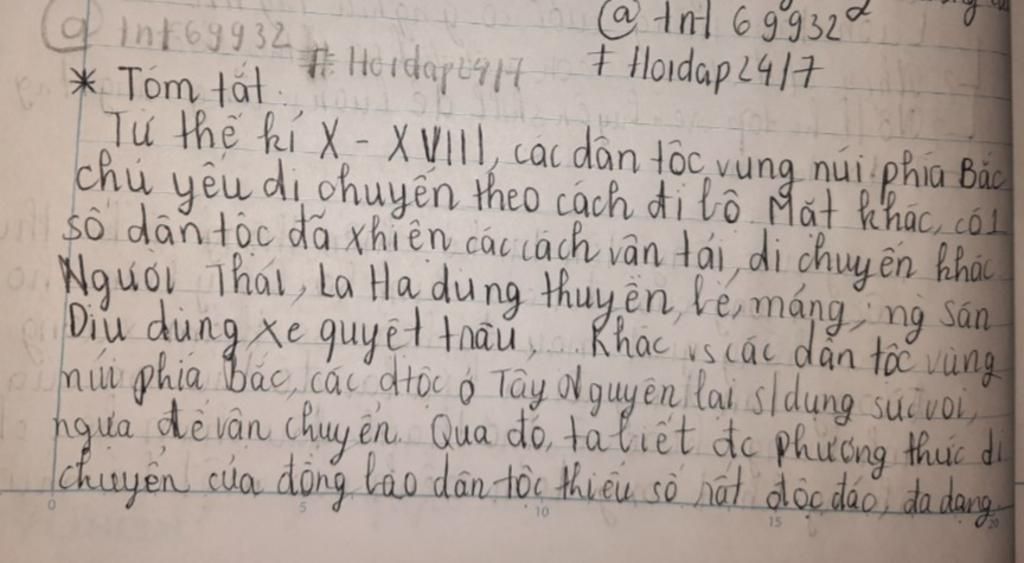 @ Int 69932
@ Int69932 # Hoidap24/7
# Hoidap24/7
* Tóm tắt:
Từ thế kỉ X - XVIII, các dân tộc vùng núi phía Bắc
chủ yếu di chuyển theo cách đi bộ. Mặt khác, có 1
số dân tộc đã xhiện các cách vận tải, di chuyển khác
Người Thái, La Ha dùng thuyền, bè, mảng, ng sán
Dìu dùng xe quyệt trâu, . Khác vs các dân tộc vùng
núi phía bắc, các dtộc ở Tây Nguyên lại s/dụng sức voi,
ngựa để vận chuyển. Qua đó, ta biết đc phương thức di
chuyển của đồng bào dân tộc thiểu số rất độc đáo, đa dạng
0 5 10 15 20